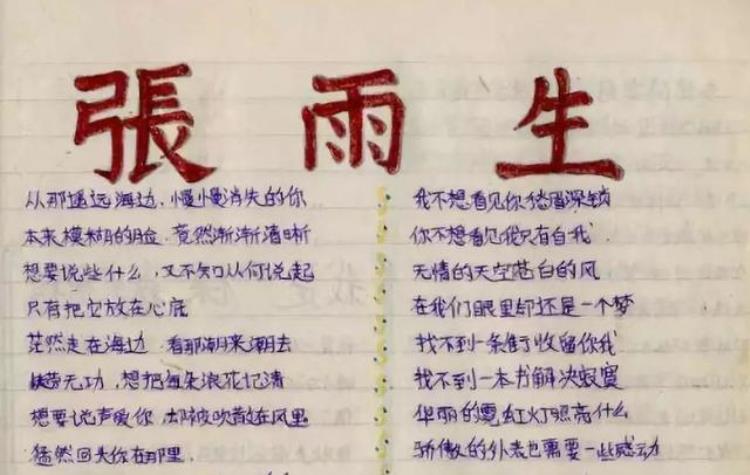 張雨生
从那遥远海边,慢慢消失的你
本来模糊的脸,竟然渐渐清晰
想要说些什么,又不知从何说起
只有把它放在心底
茫然走在海边 看那潮来潮去
徒劳无功,想把每朵浪花记清
想要说声爱你,却被吹散在风里
猛然回头你在那里.
我不想看见你愁眉深锁
你不想看见我只有自我
无情的天空苍白的风
在我们眼里却还是一个梦
找不到一条街收留你我
找不到一本书解决寂寞
华丽的霓虹灯照亮什么
骄傲的外表也需要一些感动